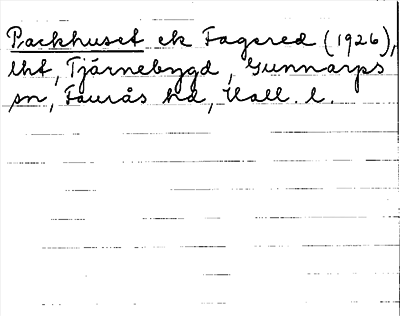 Packhuset ek Fagered (1926),
lht, Tjärnebygd, Gunnarps
sn, Faurås hd, Hall. l.